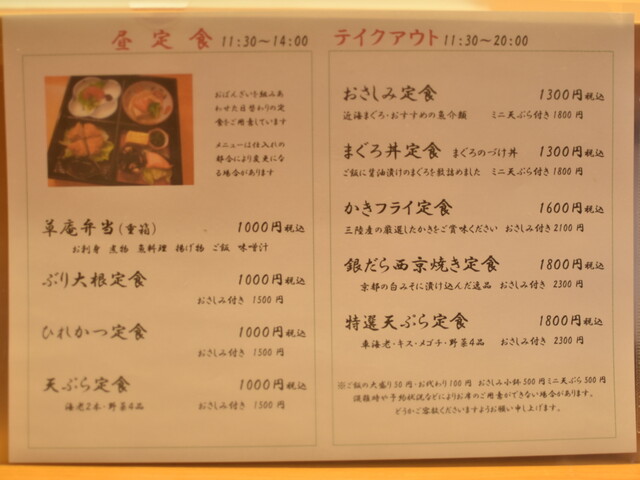 昼定食 11:30〜14:00
おばんざいを組みあ
わせた日替わりの定
食をご用意しています
メニューは仕入れの
都合により変更にな
る場合があります
草庵弁当(重箱) 1000円税込
お刺身 煮物 魚料理 揚げ物 ご飯 味噌汁
ぶり大根定食 1000円税込
おさしみ付き 1500円
ひれかつ定食 1000円税込
おさしみ付き 1500円
天ぷら定食 1000円税込
海老2本・野菜4品 おさしみ付き 1500円
テイクアウト 11:30〜20:00
おさしみ定食 1300円税込
近海まぐろ・おすすめの魚介類 ミニ天ぷら付き1800円
まぐろ丼定食 まぐろのづけ丼 1300円税込
ご飯に醤油漬けのまぐろを敷詰めました ミニ天ぷら付き1800円
かきフライ定食 1600円税込
三陸産の厳選したかきをご賞味ください おさしみ付き2100円
銀だら西京焼き定食 1800円税込
京都の白みそに漬け込んだ逸品 おさしみ付き 2300円
特選天ぷら定食 1800円税込
車海老・キス・メゴチ・野菜4品 おさしみ付き 2300円
※ご飯の大盛り50円・お代わり100円 おさしみ小鉢500円ミニ天ぷら500円
混雑時や予約状況などによりお席のご用意ができない場合があります。
どうかご容赦くださいますようお願い申し上げます。